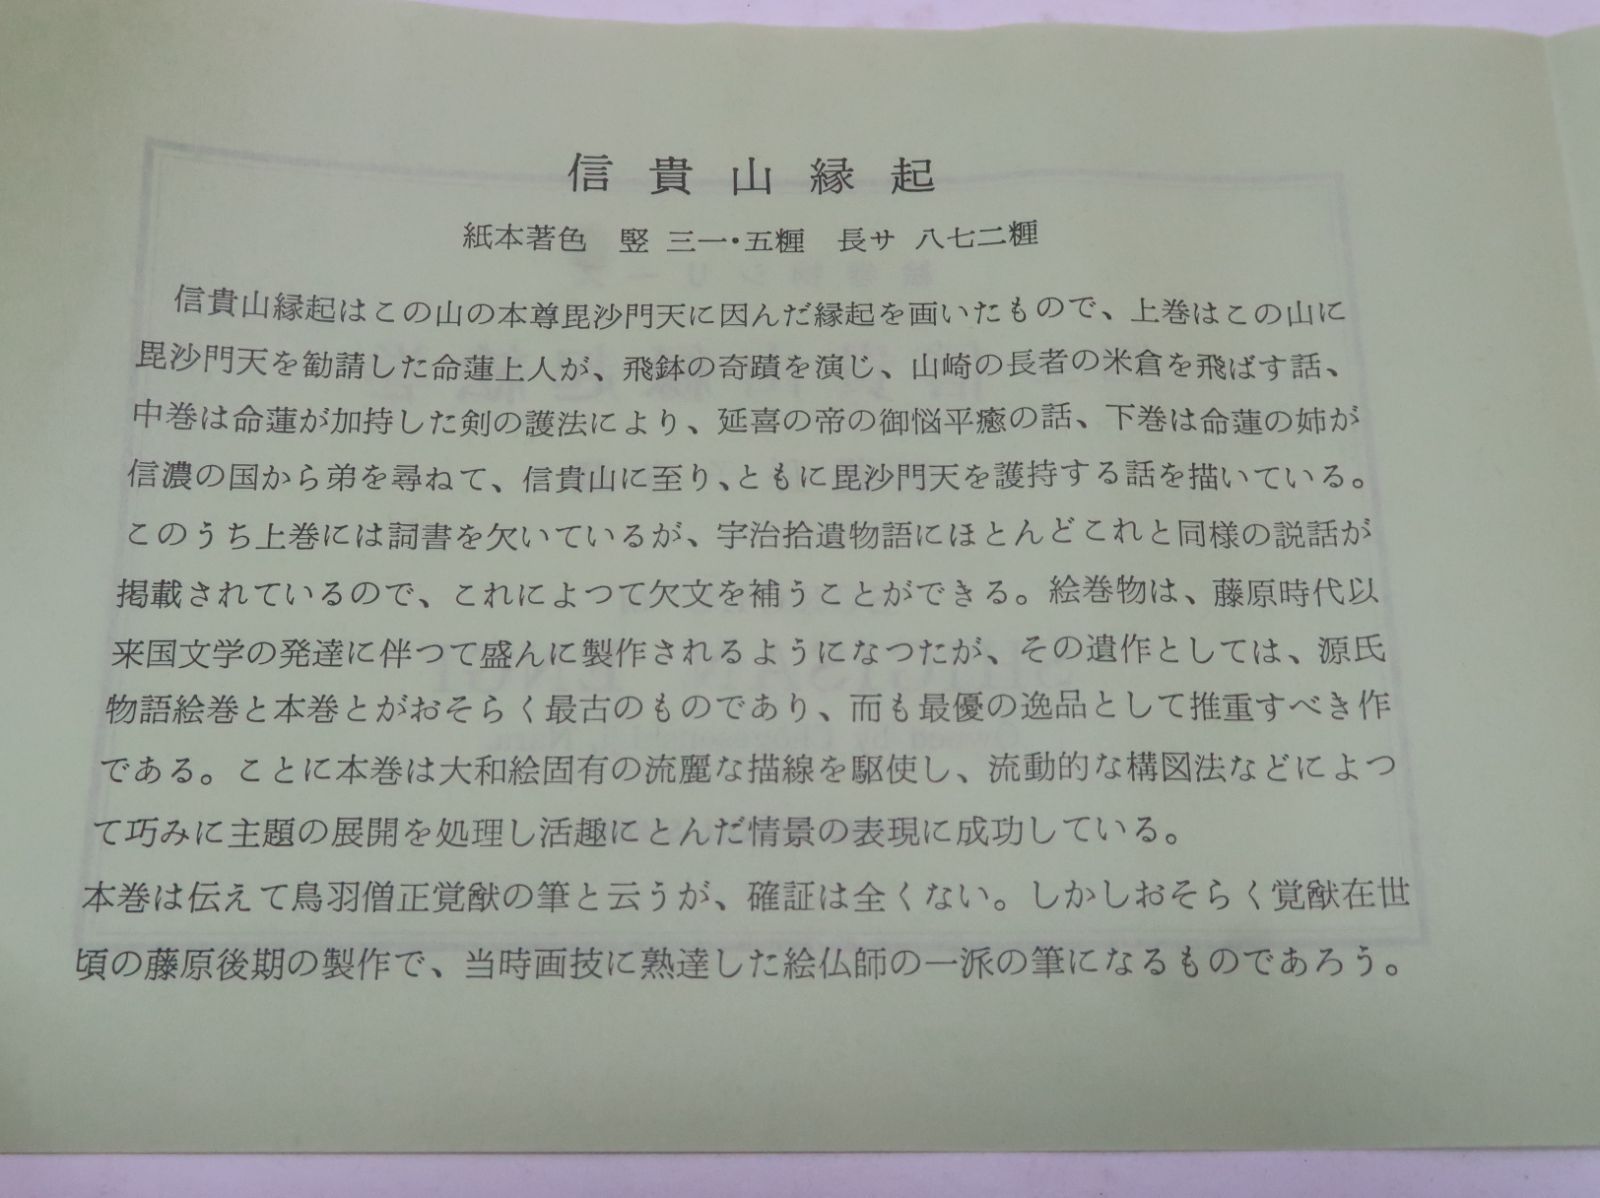 信貴山縁起
紙本著色 竪 三一・五糎 長サ 八七二糎
信貴山縁起はこの山の本尊毘沙門天に因んだ縁起を画いたもので、上巻はこの山に
毘沙門天を勧請した命蓮上人が、飛鉢の奇蹟を演じ、山崎の長者の米倉を飛ばす話、
中巻は命蓮が加持した剣の護法により、延喜の帝の御悩平癒の話、下巻は命蓮の姉が
信濃の国から弟を尋ねて、信貴山に至り、ともに毘沙門天を護持する話を描いている。
このうち上巻には詞書を欠いているが、宇治拾遺物語にほとんどこれと同様の説話が
掲載されているので、これによつて欠文を補うことができる。絵巻物は、藤原時代以
来国文学の発達に伴つて盛んに製作されるようになつたが、その遺作としては、源氏
物語絵巻と本巻とがおそらく最古のものであり、而も最優の逸品として推重すべき作
である。ことに本巻は大和絵固有の流麗な描線を駆使し、流動的な構図法などによつ
て巧みに主題の展開を処理し活趣にとんだ情景の表現に成功している。
本巻は伝えて鳥羽僧正覚猷の筆と云うが、確証は全くない。しかしおそらく覚猷在世
頃の藤原後期の製作で、当時画技に熟達した絵仏師の一派の筆になるものであろう。